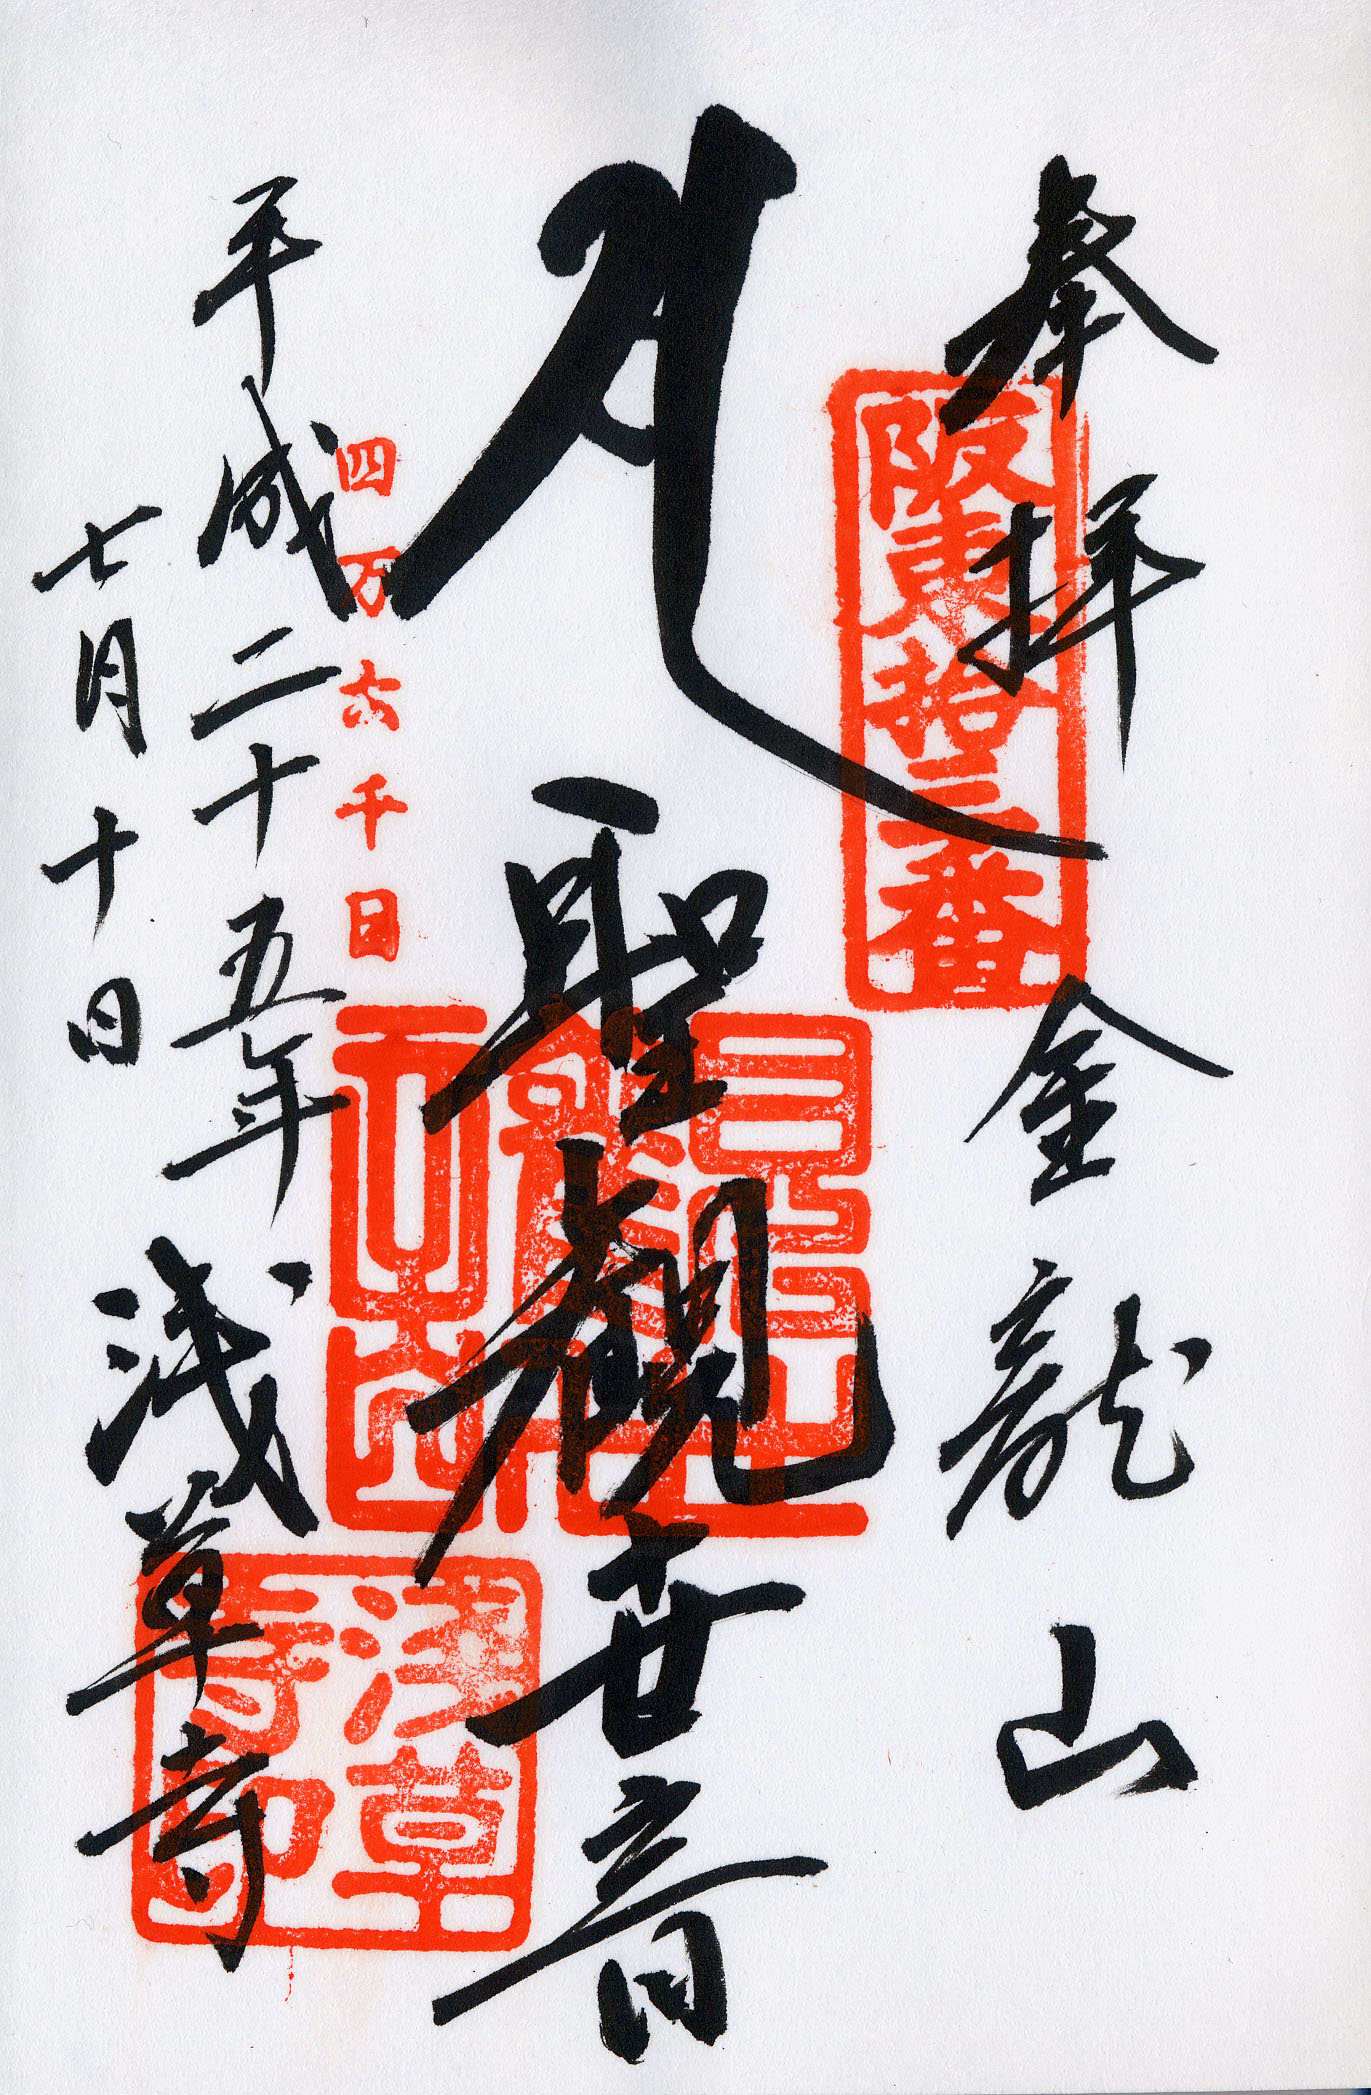 奉拝 金龍山
阪東拾三番
聖観世音
四万六千日
平成二十五年
浅草寺
七月十日
浅草寺印